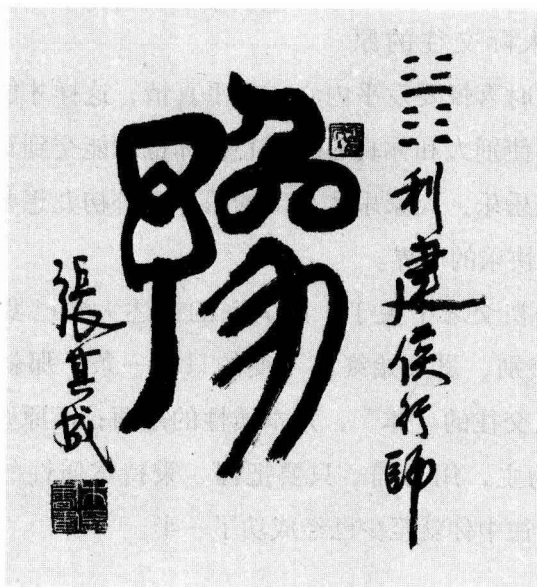 ䷏利建侯行師
豫
張其成